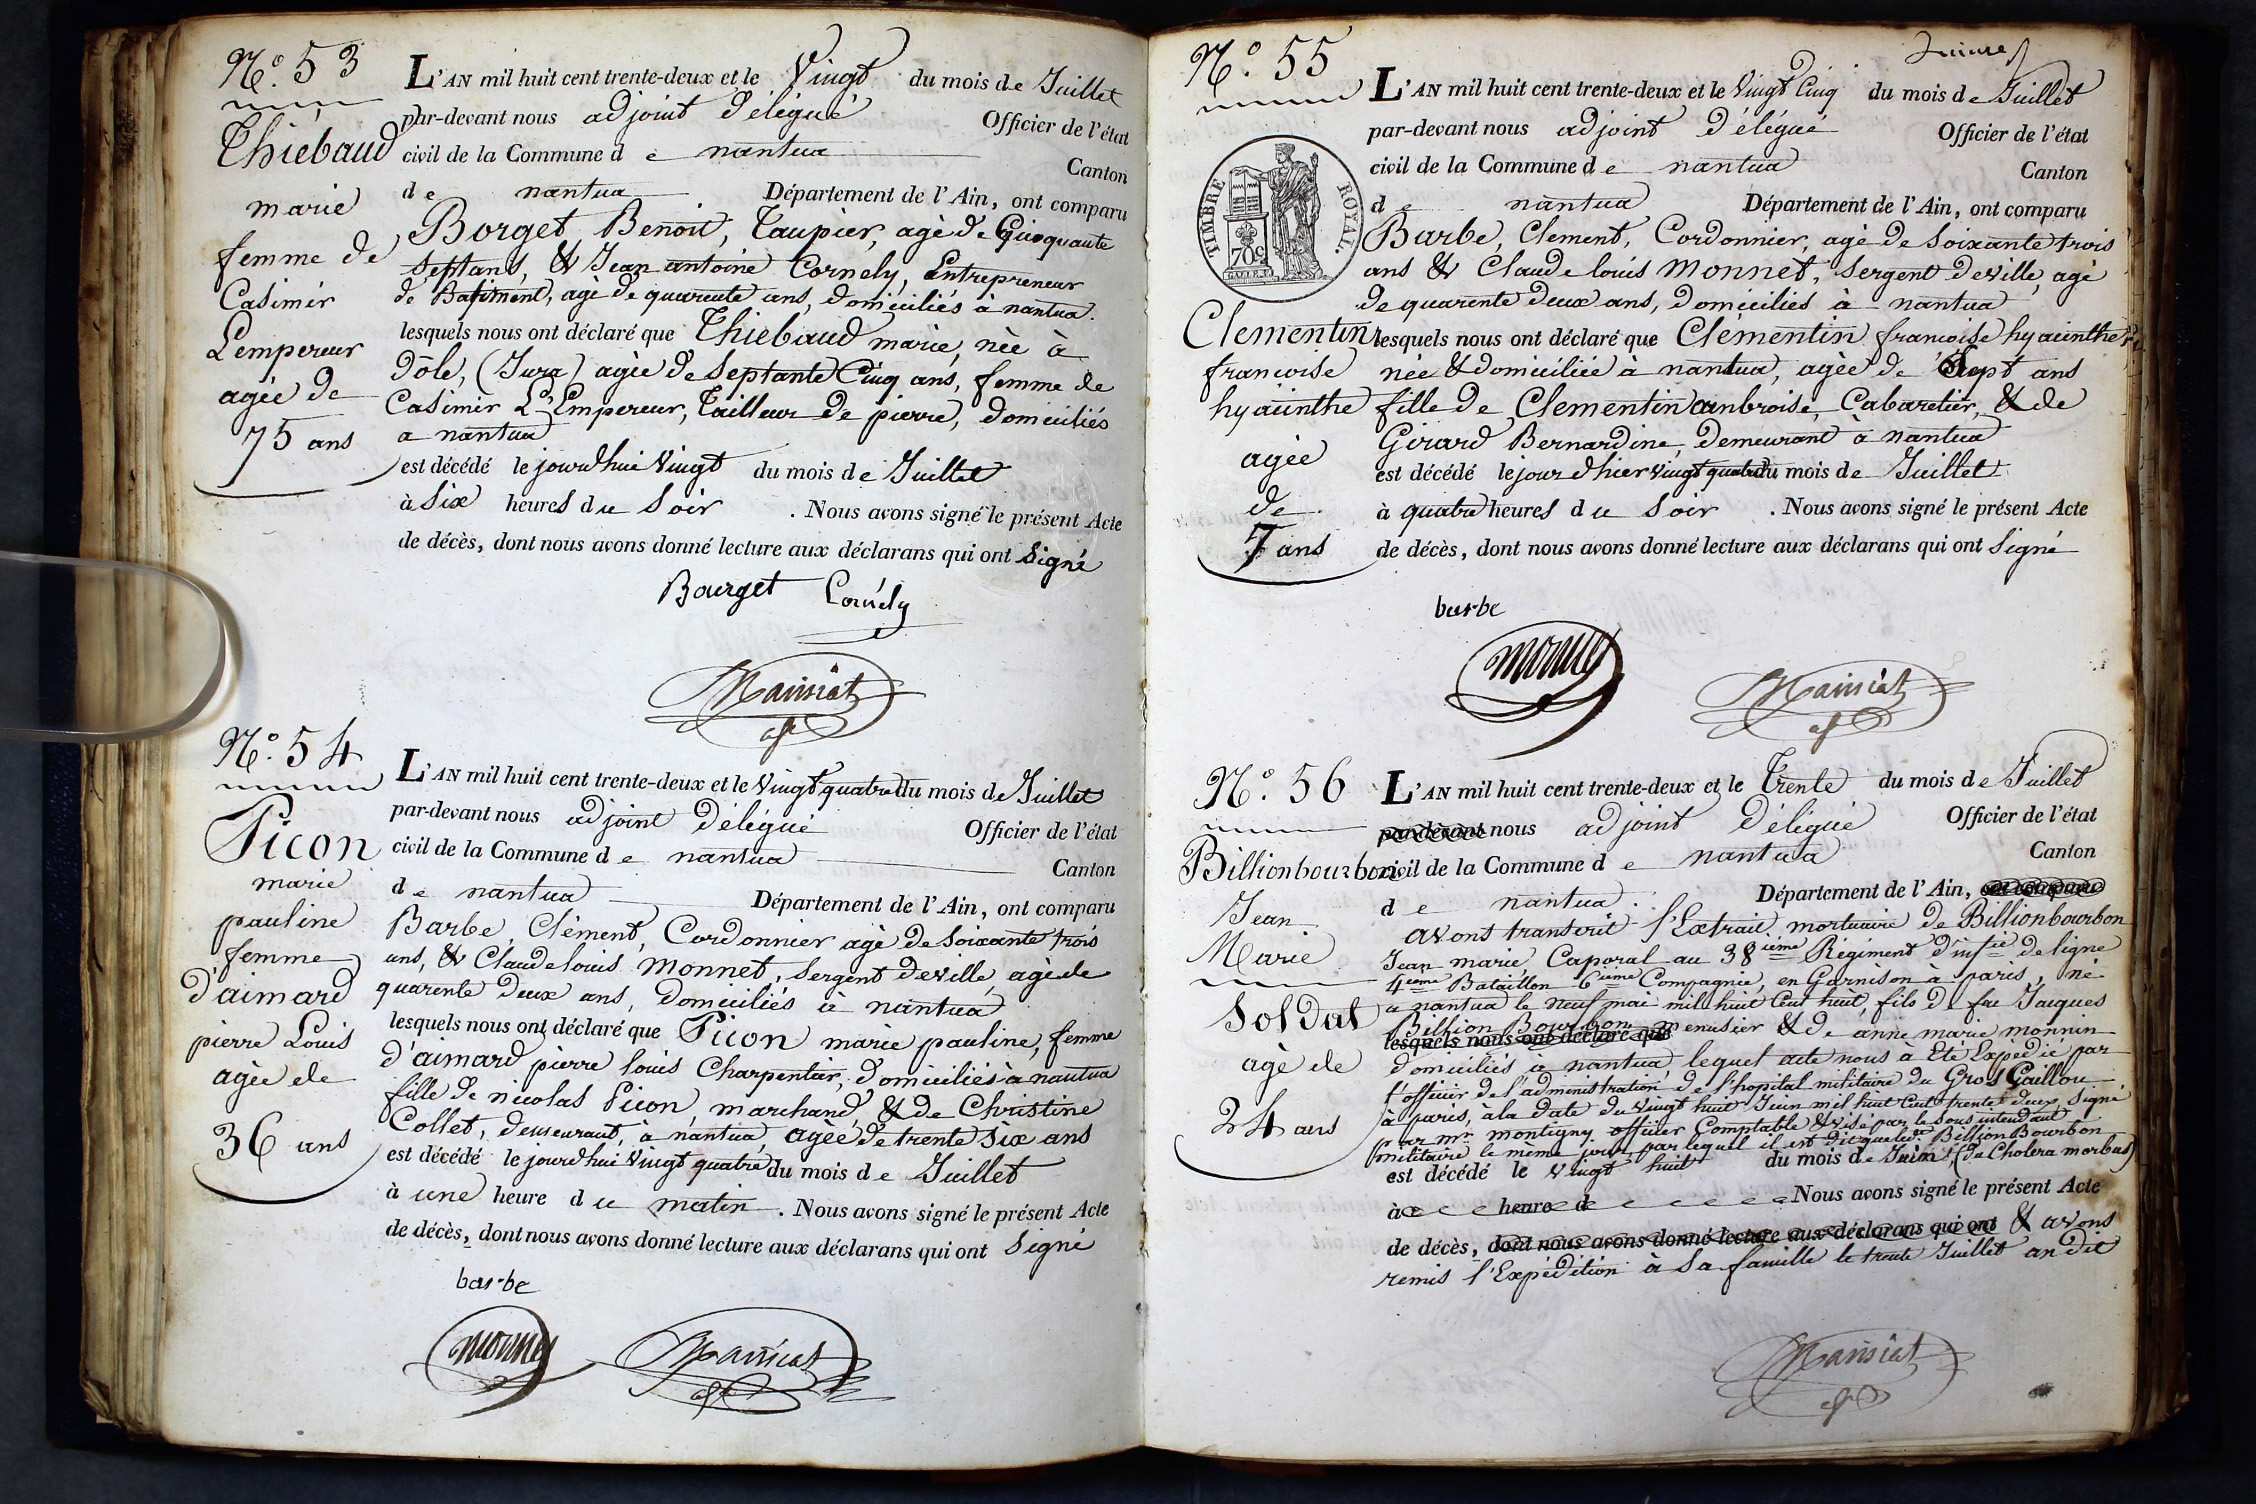 N.º 53
Thiebaud
marie
femme de
Casimir
Lempereur
agée de
75 ans
L'AN mil huit cent trente-deux et le Vingt du mois de Juillet
par-devant nous adjoint Délégué Officier de l'état
civil de la Commune de nantua Canton
de nantua Département de l'Ain, ont comparu
Borget Benoit, Taupier, agé de Cinquante
Sept ans, & Jean antoine Cornely, Entrepreneur
de Batiment, agé de quarente ans, domiciliés à nantua.
lesquels nous ont déclaré que Thiebaud marie, née à
Dôle, (Jura) agée de Septante Cinq ans, femme de
Casimir L'Empereur, Tailleur de pierre, domiciliés
a nantua
est décédé le jourd'hui Vingt du mois de Juillet
à Six heures du Soir. Nous avons signé le présent Acte
de décès, dont nous avons donné lecture aux déclarans qui ont Signé
Bourget Cornely
Mainiat
N.º 54
Picon
marie
pauline
femme
d'aimard
pierre Louis
agée de
36 ans
L'AN mil huit cent trente-deux et le Vingt quatre du mois de Juillet
par-devant nous adjoint Délégué Officier de l'état
civil de la Commune de nantua Canton
de nantua Département de l'Ain, ont comparu
Barbe, Clément, Cordonnier agé de Soixante trois
ans, & Claude louis Monnet, Sergent de ville, agé de
quarente deux ans, domiciliés à nantua
lesquels nous ont déclaré que Picon marie pauline, femme
d'aimard pierre louis Charpentier, domiciliés à nantua
fille de nicolas Picon, marchand, & de Christine
Collet, demeurant, à nantua, agée de trente Six ans
est décédé le jourd'hui Vingt quatre du mois de Juillet
à une heure du matin. Nous avons signé le présent Acte
de décès, dont nous avons donné lecture aux déclarans qui ont Signé
barbe
monnet Mainiat
N.º 55
TIMBRE ROYAL.
70 c
Clementin
francoise
hyacinthe
agée
de
7 ans
L'AN mil huit cent trente-deux et le Vingt Cinq du mois de Juillet
par-devant nous adjoint Délégué Officier de l'état
civil de la Commune de nantua Canton
de nantua Département de l'Ain, ont comparu
Barbe, Clement, Cordonnier, agé de Soixante trois
ans & Claude louis Monnet, Sergent de ville, agé
de quarente deux ans, domiciliés à nantua
lesquels nous ont déclaré que Clementin francoise hyacinthe
née & domiciliée à nantua, agée de Sept ans
fille de Clementin ambroise, Cabaretier, & de
Girard Bernardine, demeurant à nantua
est décédé le jour d'hier vingt quatre du mois de Juillet
à quatre heures du Soir. Nous avons signé le présent Acte
de décès, dont nous avons donné lecture aux déclarans qui ont Signé
barbe
monnet
Mainiat
N.º 56
Billionbourbon
Jean
Marie
Soldat
agé de
24 ans
L'AN mil huit cent trente-deux et le Trente du mois de Juillet
par-devant nous adjoint Délégué Officier de l'état
civil de la Commune de nantua Canton
de nantua. Département de l'Ain, ont comparu
avons transcrit l'Extrait mortuaire de Billionbourbon
Jean marie Caporal au 38ième Régiment d'inf.ie de ligne
4ième Bataillon 6ième Compagnie, en Garnison à paris, né
a nantua le neuf mai mil huit Cent huit, fils de feu Jacques
Billion Bourbon menusier & de anne marie monnin
lesquels nous ont déclaré que
domiciliés à nantua, lequel acte nous à Eté Expédié par
l'officier de l'administration de l'hopital militaire du Gros Caillou
à paris, à la date du vingt huit Juin mil huit Cent trente deux Signé
par mr montigny officier Comptable & visé par le Sous intendant
militaire le même jour, par lequel il est dit que led. Billion Bourbon
est décédé le vingt huit du mois de Juin (du Cholera morbus)
à heure d Nous avons signé le présent Acte
de décès, dont nous avons donné lecture aux déclarans qui ont & avons
remis l'Expédition à Sa famille le trente Juillet an dit
Mainiat